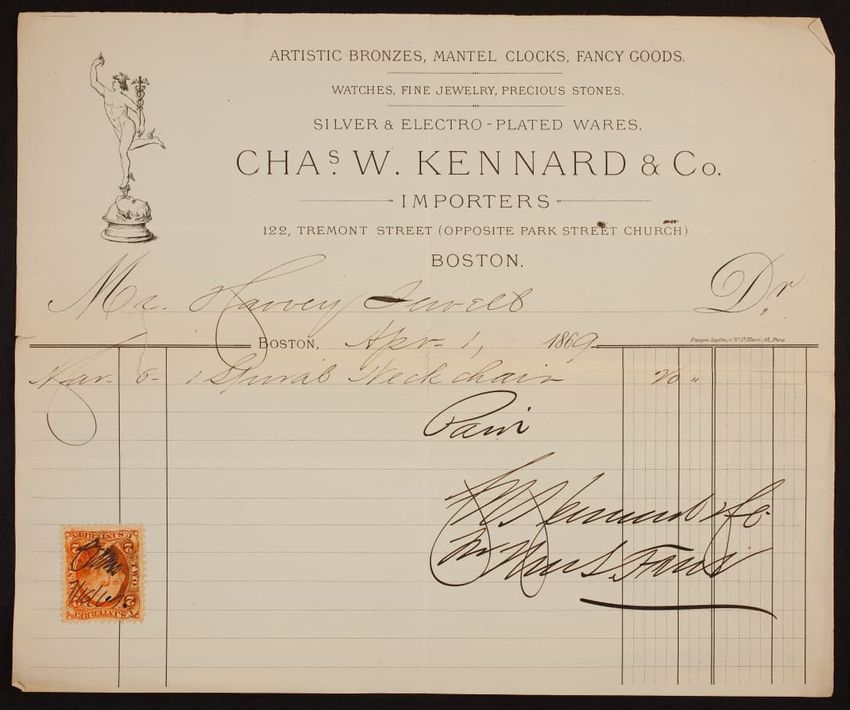 ARTISTIC BRONZES, MANTEL CLOCKS, FANCY GOODS.
WATCHES, FINE JEWELRY, PRECIOUS STONES.
SILVER & ELECTRO-PLATED WARES.
CHAS. W. KENNARD & Co.
IMPORTERS
122, TREMONT STREET (OPPOSITE PARK STREET CHURCH)
BOSTON.
Mr. Harvey Jewell Dr
BOSTON, Apr. 1, 1869
Mar. 6 1 Spiral Neck chain
Paid
C W Kennard & Co